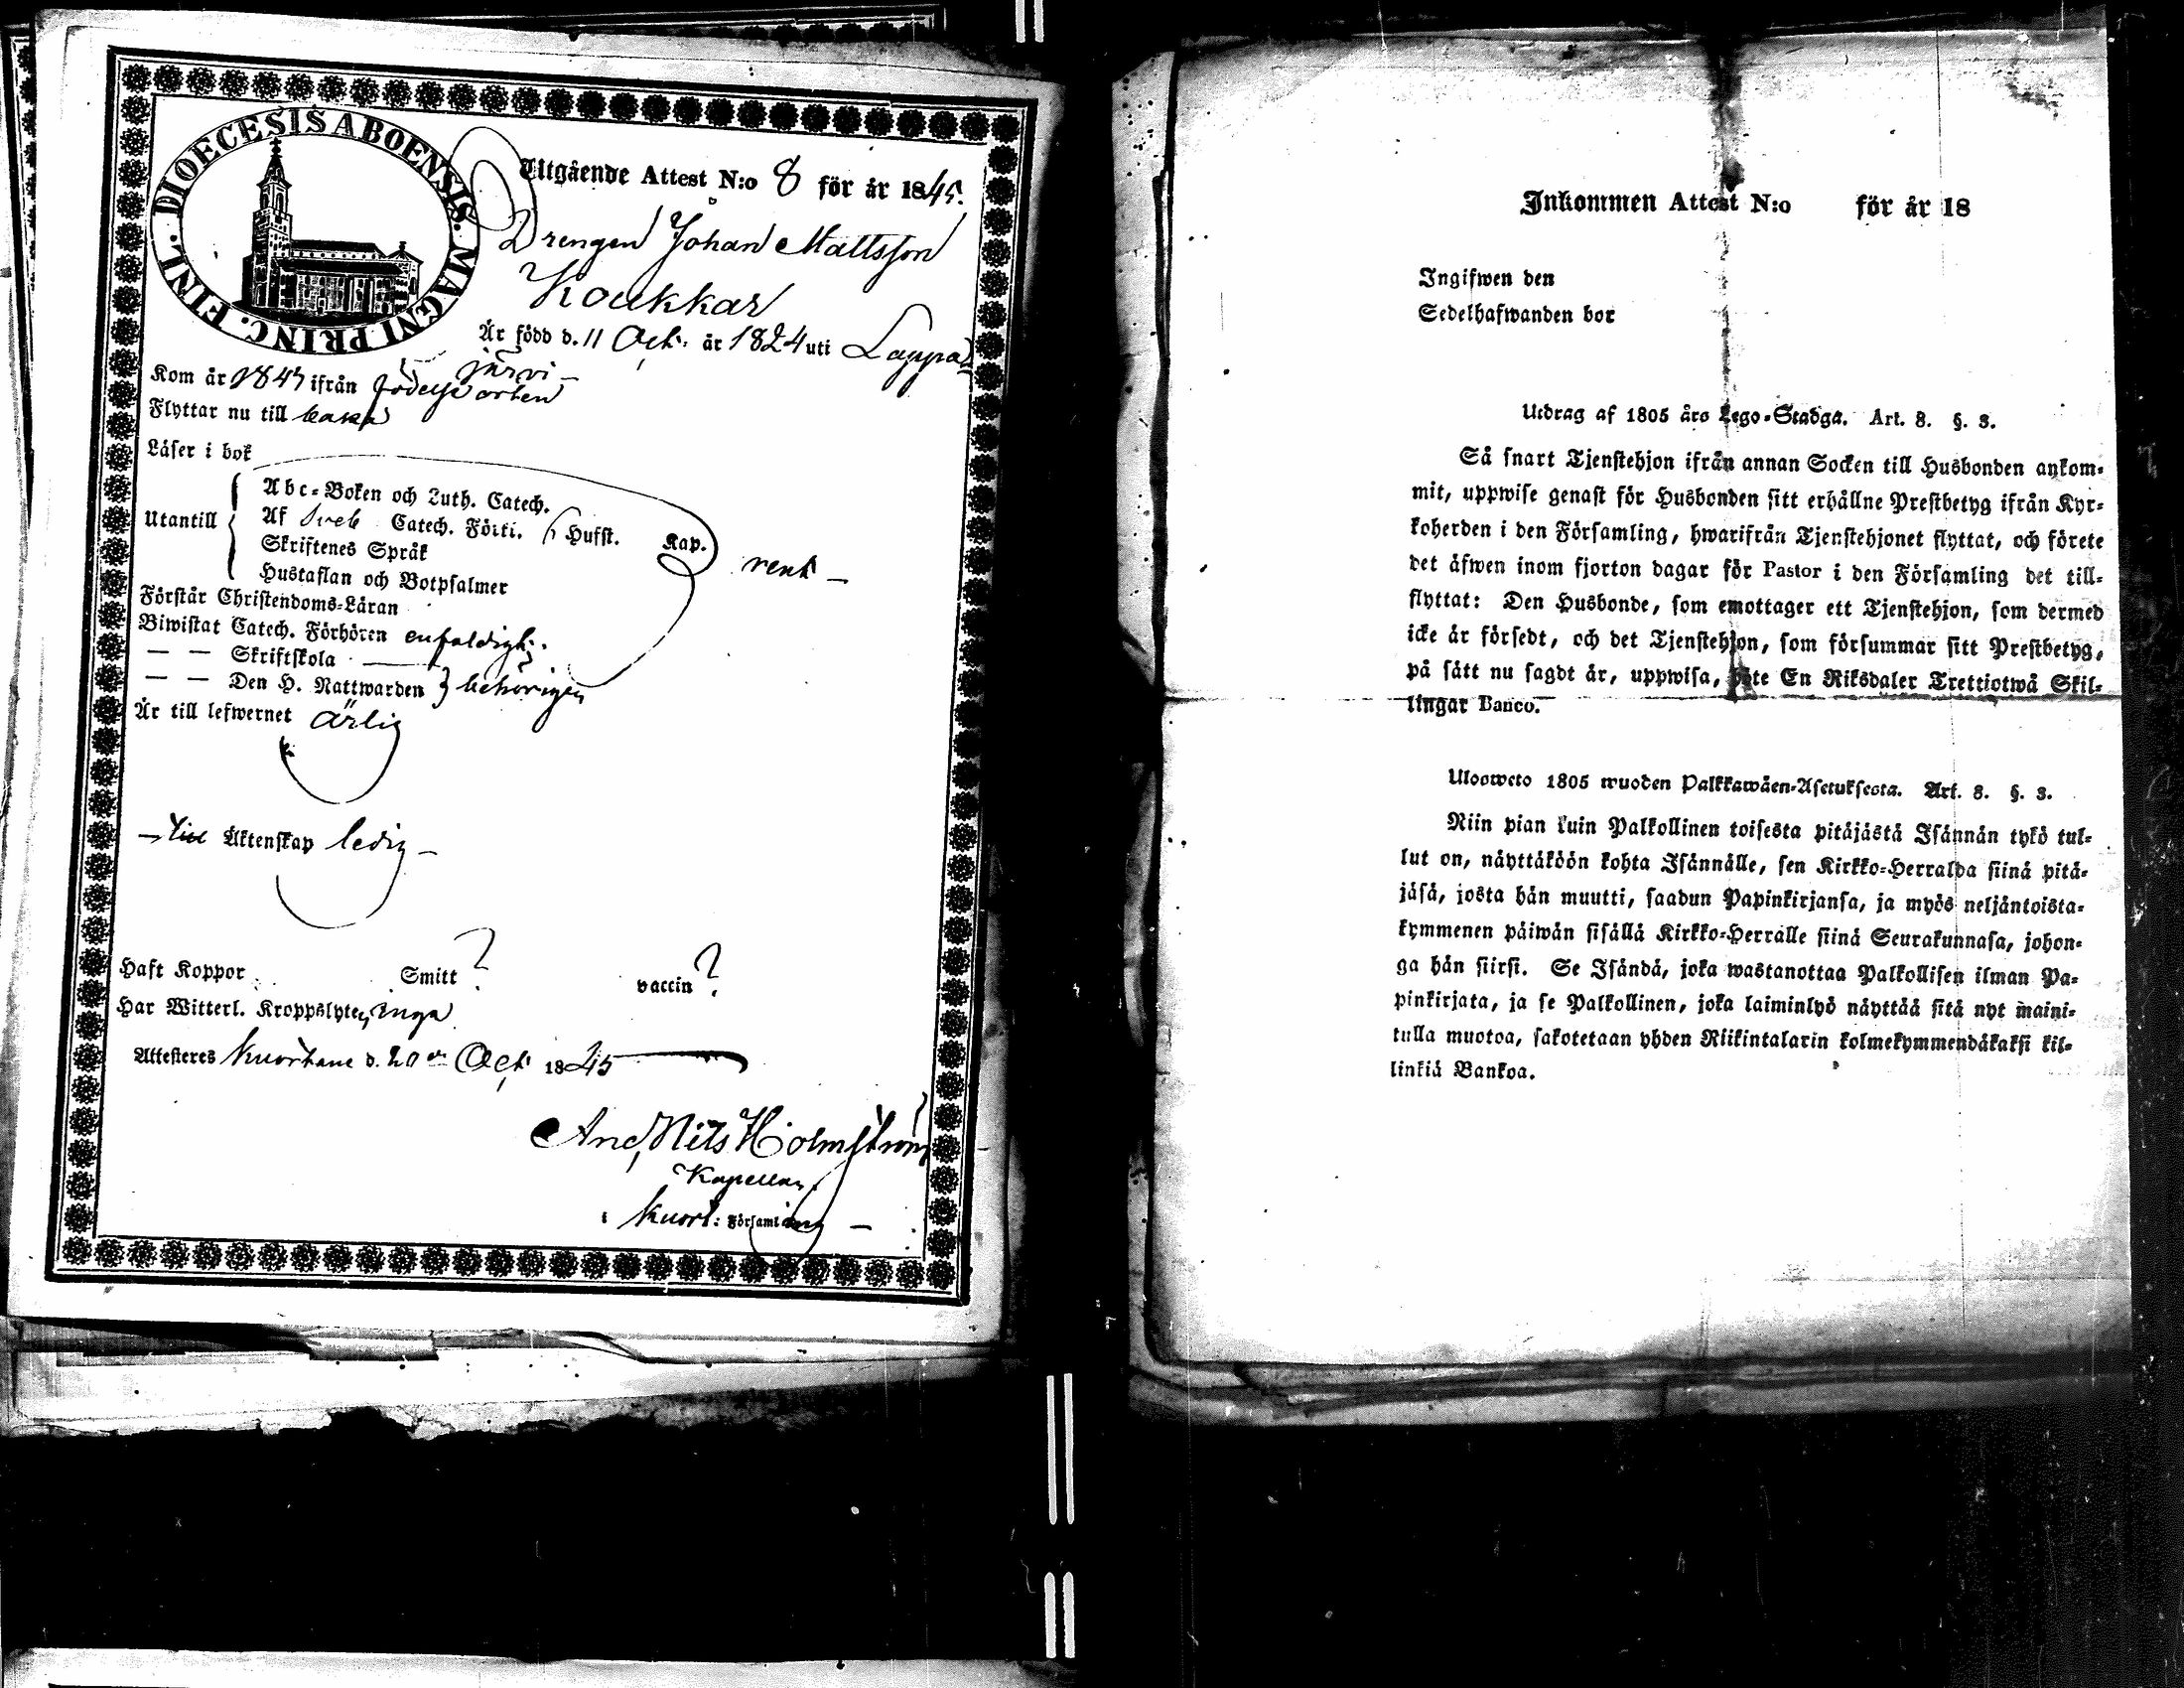 DIOECESIS ABOENSIS. MAGNI PRINC. FINL.
Utgående Attest N:o 8 för år 1845.
Drengen Johan Mattsson
Koukkar
Är född d. 11 Oct. år 1824 uti Lappa=
järvi –
Kom år 1845 ifrån födelseorten
Flyttar nu till baka
Läser i bok
Utantill
Abc-Boken och Luth. Catech.
Af Sveb Catech. Förkl. Husst. Kap.
Skriftenes Språk
Hustaflan och Botpsalmer
rent –
Förstår Christendoms-Läran
Biwistat Catech. Förhören enfaldigt.
— — Skriftskola
— — Den H. Nattwarden behörigen
Är till lefwernet ärlig
– till Äktenskap ledig –
Haft Koppor Smitt ? vaccin ?
Har Witterl. Kroppslyten, inga
Attesteres Kuortane d. 20 de Oct 1845
And, Nils Holmström
Kapellan
i Kuort: Församling –
Inkommen Attest N:o för år 18
Ingifwen den
Sedelhafwanden bor
Utdrag af 1805 års Lego-Stadga. Art. 8. §. 3.
Så snart Tjenstehjon ifrån annan Socken till Husbonden ankom-
mit, uppwise genast för Husbonden sitt erhållne Prestbetyg ifrån Kyr-
koherden i den Församling, hwarifrån Tjenstehjonet flyttat, och förete
det äfwen inom fjorton dagar för Pastor i den Församling det till-
flyttat: Den Husbonde, som emottager ett Tjenstehjon, som dermed
icke är försedt, och det Tjenstehjon, som försummar sitt Prestbetyg,
på sätt nu sagdt är, uppwisa, böte En Riksdaler Trettiotwå Skil-
lingar Banco.
Ulosweto 1805 wuoden Palkkawäen-Asetuksesta. Art. 8. §. 3.
Niin pian kuin Palkollinen toisesta pitäjästä Isännän tykö tul-
lut on, näyttäköön kohta Isännälle, sen Kirkko-Herralda siinä pitä-
jäsä, josta hän muutti, saadun Papinkirjansa, ja myös neljäntoista-
kymmenen päiwän sisällä Kirkko-Herralle siinä Seurakunnasa, johon-
ga hän siirsi. Se Isändä, joka wastanottaa Palkollisen ilman Pa-
pinkirjata, ja se Palkollinen, joka laiminlyö näyttää sitä nyt maini-
tulla muotoa, sakotetaan yhden Riikintalarin kolmekymmendäkaksi kil-
linkiä Bankoa.